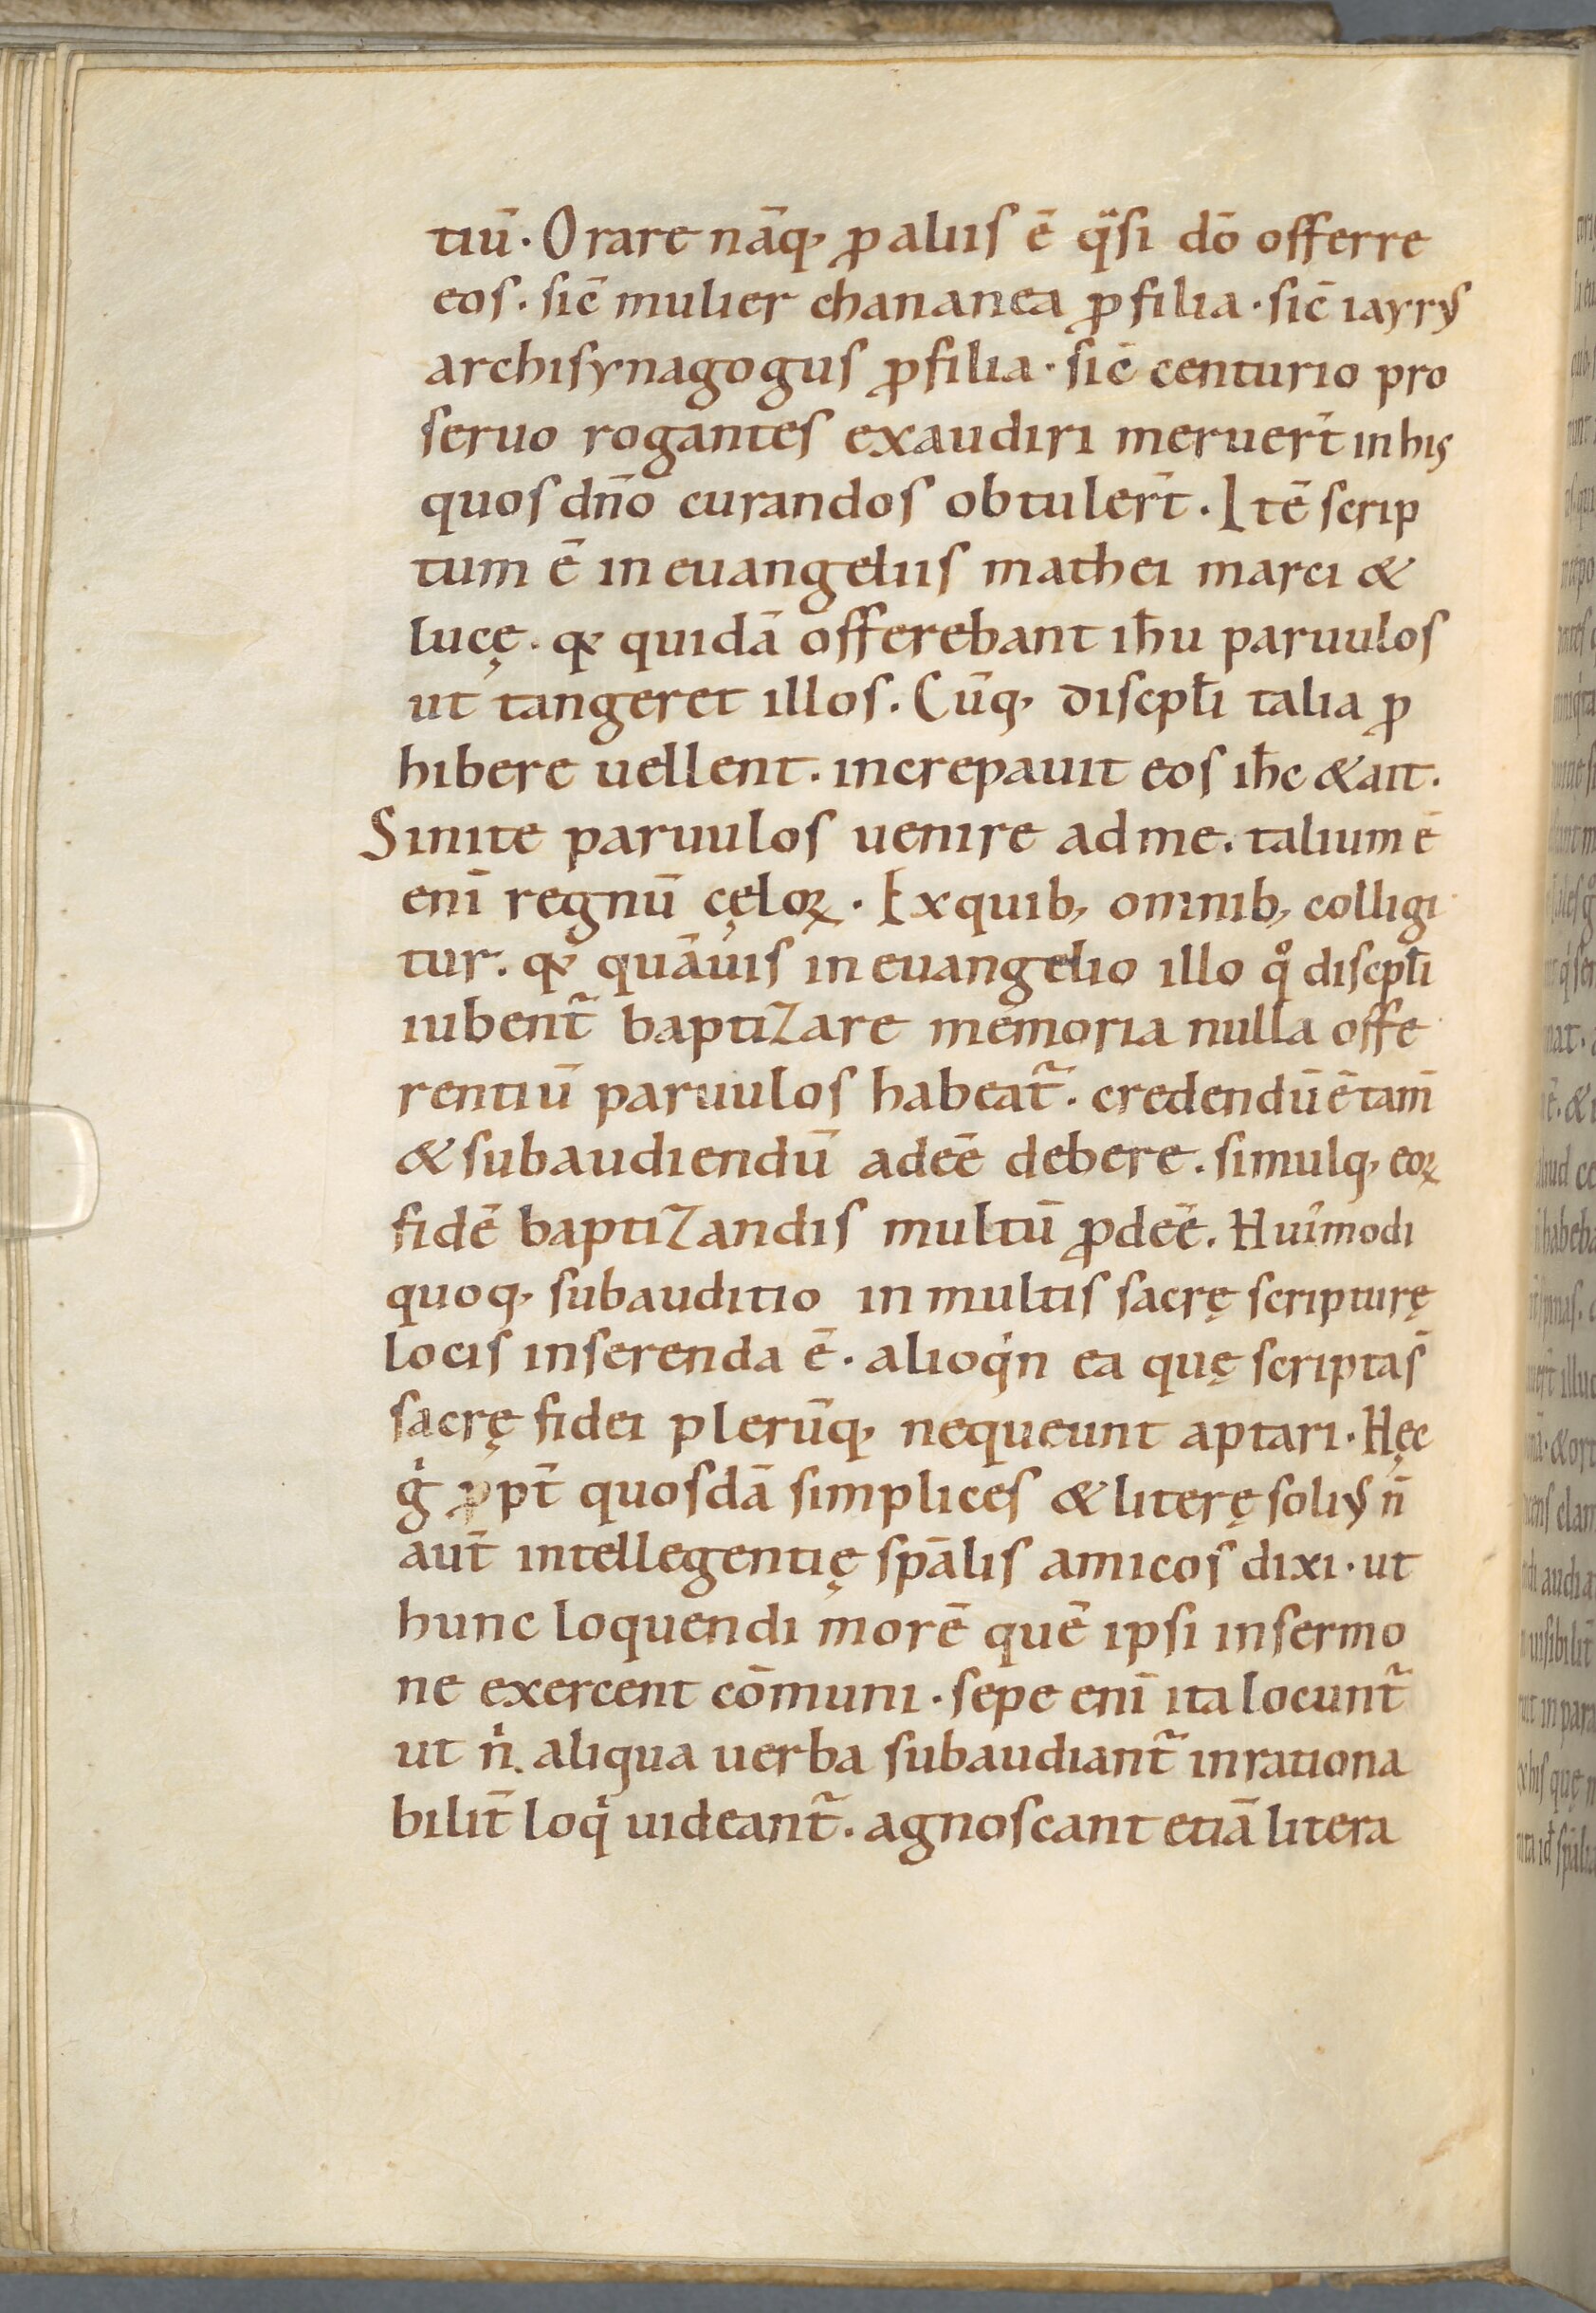 tiū. Orare nāq; ꝓ aliis ē q̈si dō offerre
eos. sic̄ mulier chananea ꝓ filia. sic̄ iayrꝰ
archisynagogus ꝓ filia. sic̄ centurio pro
seruo rogantes exaudiri meruer̄t in his
quos dn̄o curandos obtuler̄t. Itē scrip
tum ē in euangeliis mathei marci &
lucę. qđ quidā offerebant ih̄u paruulos
ut tangeret illos. Cūq; discipl̄i talia ꝓ
hibere uellent. increpauit eos ih̄c & ait.
Sinite paruulos uenire ad me. talium ē
eni̅ regnū cęloꝝ. Ex quib; omnib; colligi
tur. qđ quāuis in euangelio illo qͦ discpl̄i
iubent᷑ baptizare memoria nulla offe
rentiū paruulos habeat᷑. credendū ē tam̄
& subaudiendū adeē debere. simulq; eoꝝ
fidē baptizandis multū ꝓdeē. Hui᷒modi
quoq; subauditio in multis sacrę scripturę
locis inserenda ē. alioqͥn ea quę scripta s̄
sacrę fidei plerūq; nequeunt aptari. Hęc
gͥ ꝓpt̄ quosdā simplices & literę soliꝰ n̄
aut̄ intellegentię sp̄alis amicos dixi. ut
hunc loquendi morē quē ipsi in sermo
ne exercent cōmuni. sepe eni̅ ita locunt᷑
ut nͥ aliqua uerba subaudiant᷑ inrationa
bilit̄ loqͥ uideant᷑. agnoscant etiā litera